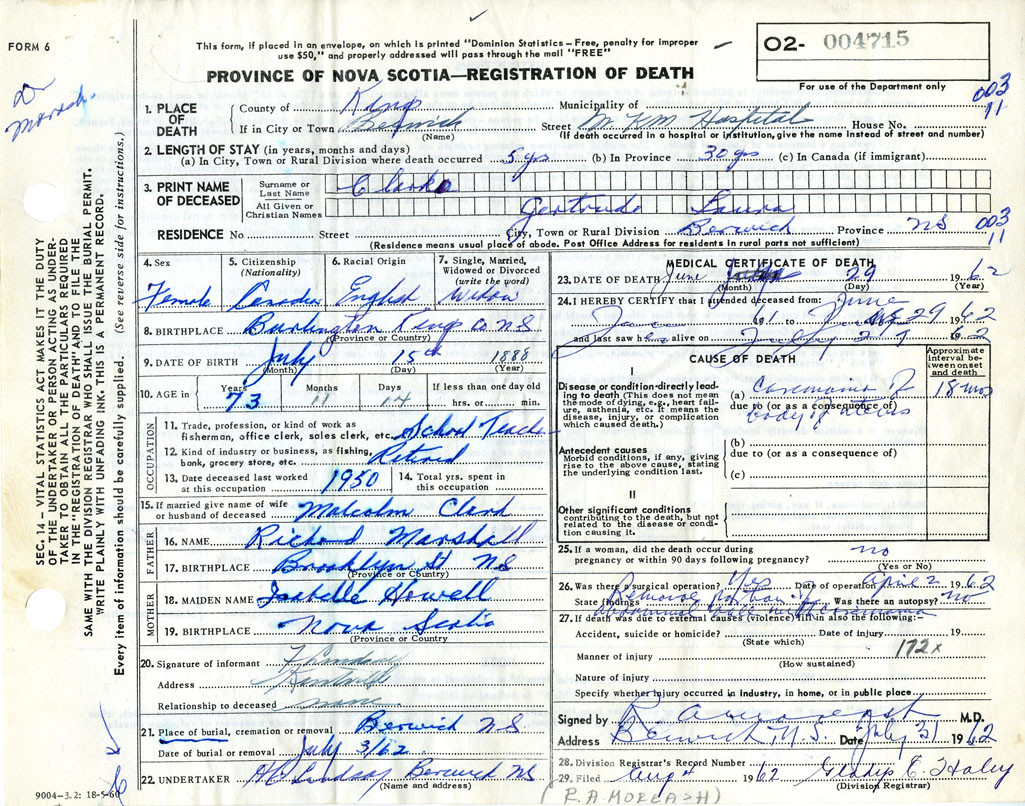 FORM 6
This form, if placed in an envelope, on which is printed "Dominion Statistics – Free, penalty for improper
use $50," and properly addressed will pass through the mail "FREE"
PROVINCE OF NOVA SCOTIA—REGISTRATION OF DEATH
O2- 004715
For use of the Department only
003
11
Dr
SEC. 14 —VITAL STATISTICS ACT MAKES IT THE DUTY
OF THE UNDERTAKER OR PERSON ACTING AS UNDER-
TAKER TO OBTAIN ALL THE PARTICULARS REQUIRED
IN THE "REGISTRATION OF DEATH" AND TO FILE THE
SAME WITH THE DIVISION REGISTRAR WHO SHALL ISSUE THE BURIAL PERMIT.
WRITE PLAINLY WITH UNFADING INK. THIS IS A PERMANENT RECORD.
Every item of information should be carefully supplied. (See reverse side for instructions.)
1. PLACE OF DEATH
County of Kings Municipality of
If in City or Town Berwick Street W KM Hospital House No.
(Name) (If death occurred in a hospital or institution, give the name instead of street and number)
2. LENGTH OF STAY (in years, months and days)
(a) In City, Town or Rural Division where death occurred 5 yrs (b) In Province 30 yrs (c) In Canada (if immigrant)
3. PRINT NAME OF DECEASED
Surname or Last Name Clarke
All Given or Christian Names Gertrude Laura
RESIDENCE No Street City, Town or Rural Division Berwick Province NS
003
11
(Residence means usual place of abode. Post Office Address for residents in rural parts not sufficient)
4. Sex Female
5. Citizenship (Nationality) Canadian
6. Racial Origin English
7. Single, Married, Widowed or Divorced (write the word) Widow
8. BIRTHPLACE Burlington Kings Co NS
(Province or Country)
9. DATE OF BIRTH July 15th 1888
(Month) (Day) (Year)
10. AGE in Years 73 Months 11 Days 14 If less than one day old hrs. or min.
OCCUPATION
11. Trade, profession, or kind of work as
fisherman, office clerk, sales clerk, etc. School Teacher
12. Kind of industry or business, as fishing,
bank, grocery store, etc. Retired
13. Date deceased last worked at this occupation 1950
14. Total yrs. spent in this occupation
15. If married give name of wife
or husband of deceased Malcolm Clark
FATHER
16. NAME Richard Marshall
17. BIRTHPLACE Brooklyn St NS
(Province or Country)
MOTHER
18. MAIDEN NAME Isabelle Howell
19. BIRTHPLACE Nova Scotia
(Province or Country)
20. Signature of informant
Address Kentville
Relationship to deceased
21. Place of burial, cremation or removal Berwick NS
Date of burial or removal July 3/62
22. UNDERTAKER HC Lindsay Berwick NS
(Name and address)
9004—3.2: 18-5-60
6
MEDICAL CERTIFICATE OF DEATH
23. DATE OF DEATH June 29 1962
(Month) (Day) (Year)
24. I HEREBY CERTIFY that I attended deceased from:
61 to June 29 1962
and last saw h alive on 29 1962
CAUSE OF DEATH
Approximate interval between onset and death
I
Disease or condition directly lead-
ing to death (This does not mean
the mode of dying, e.g., heart fail-
ure, asthenia, etc. It means the
disease, injury, or complication
which caused death.)
(a) Carcinoma of 18 mos
due to (or as a consequence of)
body of uterus
(b)
Antecedent causes
Morbid conditions, if any, giving
rise to the above cause, stating
the underlying condition last.
due to (or as a consequence of)
(c)
II
Other significant conditions
contributing to the death, but not
related to the disease or condi-
tion causing it.
25. If a woman, did the death occur during
pregnancy or within 90 days following pregnancy? no
(Yes or No)
26. Was there a surgical operation? Yes Date of operation April 2 1962
State findings Removal part of Was there an autopsy? no
abdominal wall with carcinoma
27. If death was due to external causes (violence) fill in also the following:—
Accident, suicide or homicide? Date of injury 19
(State which) 172x
Manner of injury
(How sustained)
Nature of injury
Specify whether injury occurred in industry, in home, or in public place
Signed by R. A. Moreash M.D.
Address Berwick N.S. Date July 31 1962
28. Division Registrar's Record Number
29. Filed Aug 4 1962 Gladys E. Haley
(Division Registrar)
(R.A. MOREASH)